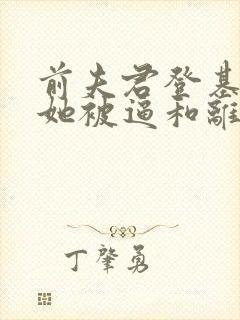 前夫君登基
她被逼和離
丁肇勇